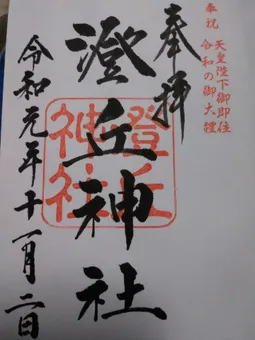 奉祝
天皇陛下御即位
令和の御大禮
奉拝
澄丘神社
澄丘神社
令和元年十一月二日